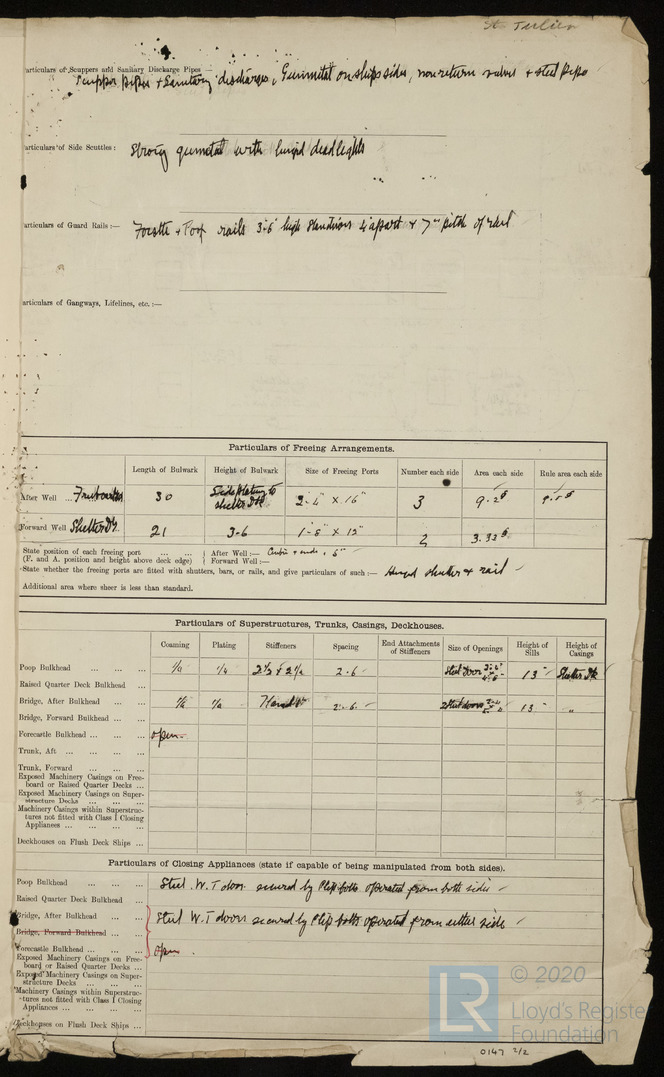 St. Julien
articulars of Scuppers and Sanitary Discharge Pipes —
Scupper pipes & Sanitary discharges, Gunmetal on ships sides, non return valves & steel pipe
articulars of Side Scuttles :
Strong gunmetal with hinged deadlights
articulars of Guard Rails :—
Focstle & Poop rails 3'-6" high Stanchions 4' apart & 7" pitch of rail
articulars of Gangways, Lifelines, etc. :—
Particulars of Freeing Arrangements.
Length of Bulwark Height of Bulwark Size of Freeing Ports Number each side Area each side Rule area each side
After Well ... 30 Side plating to shelter Dk 2'-4" X 16" 3 9.2
Forward Well Shelter Dk 21 3-6 1'-8" X 15" 2 3.33
State position of each freeing port ... ... ... } After Well :—
(F. and A. position and height above deck edge) } Forward Well :—
State whether the freeing ports are fitted with shutters, bars, or rails, and give particulars of such :— Hinged shutter & rail
Additional area where sheer is less than standard.
Particulars of Superstructures, Trunks, Casings, Deckhouses.
Coaming Plating Stiffeners Spacing End Attachments of Stiffeners Size of Openings Height of Sills Height of Casings
Poop Bulkhead ... ... ... 1/4 1/4 2½ x 2½ 2-6 Steel door 13" Shelter Dk
Raised Quarter Deck Bulkhead ...
Bridge, After Bulkhead ... ... 2-6 2 Steel doors 13" "
Bridge, Forward Bulkhead ... ...
Forecastle Bulkhead ... ... ... open
Trunk, Aft ... ... ... ...
Trunk, Forward ... ... ...
Exposed Machinery Casings on Free-
board or Raised Quarter Decks ...
Exposed Machinery Casings on Super-
structure Decks ... ... ...
Machinery Casings within Superstruc-
tures not fitted with Class I Closing
Appliances ... ... ... ...
Deckhouses on Flush Deck Ships ...
Particulars of Closing Appliances (state if capable of being manipulated from both sides).
Poop Bulkhead ... ... ... Steel W.T door secured by clip bolts operated from both sides
Raised Quarter Deck Bulkhead ...
Bridge, After Bulkhead ... ... Steel W.T doors secured by clip bolts operated from either side
Bridge, Forward Bulkhead ... ...
Forecastle Bulkhead ... ... ... open
Exposed Machinery Casings on Free-
board or Raised Quarter Decks ...
Exposed Machinery Casings on Super-
structure Decks ... ... ...
Machinery Casings within Superstruc-
tures not fitted with Class I Closing
Appliances ... ... ... ...
Deckhouses on Flush Deck Ships ...
LR © 2020
Lloyd's Register
Foundation
0147 2/2